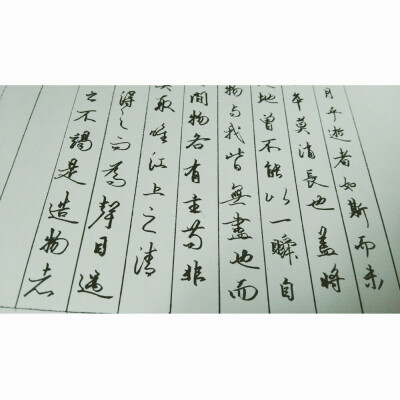 月乎逝者如斯而未
卒莫消長也蓋將
地曾不能以一瞬自
物与我皆無盡也而
間物各有主苟非
取唯江上之清
得之而為聲目遇
之不竭是造物者